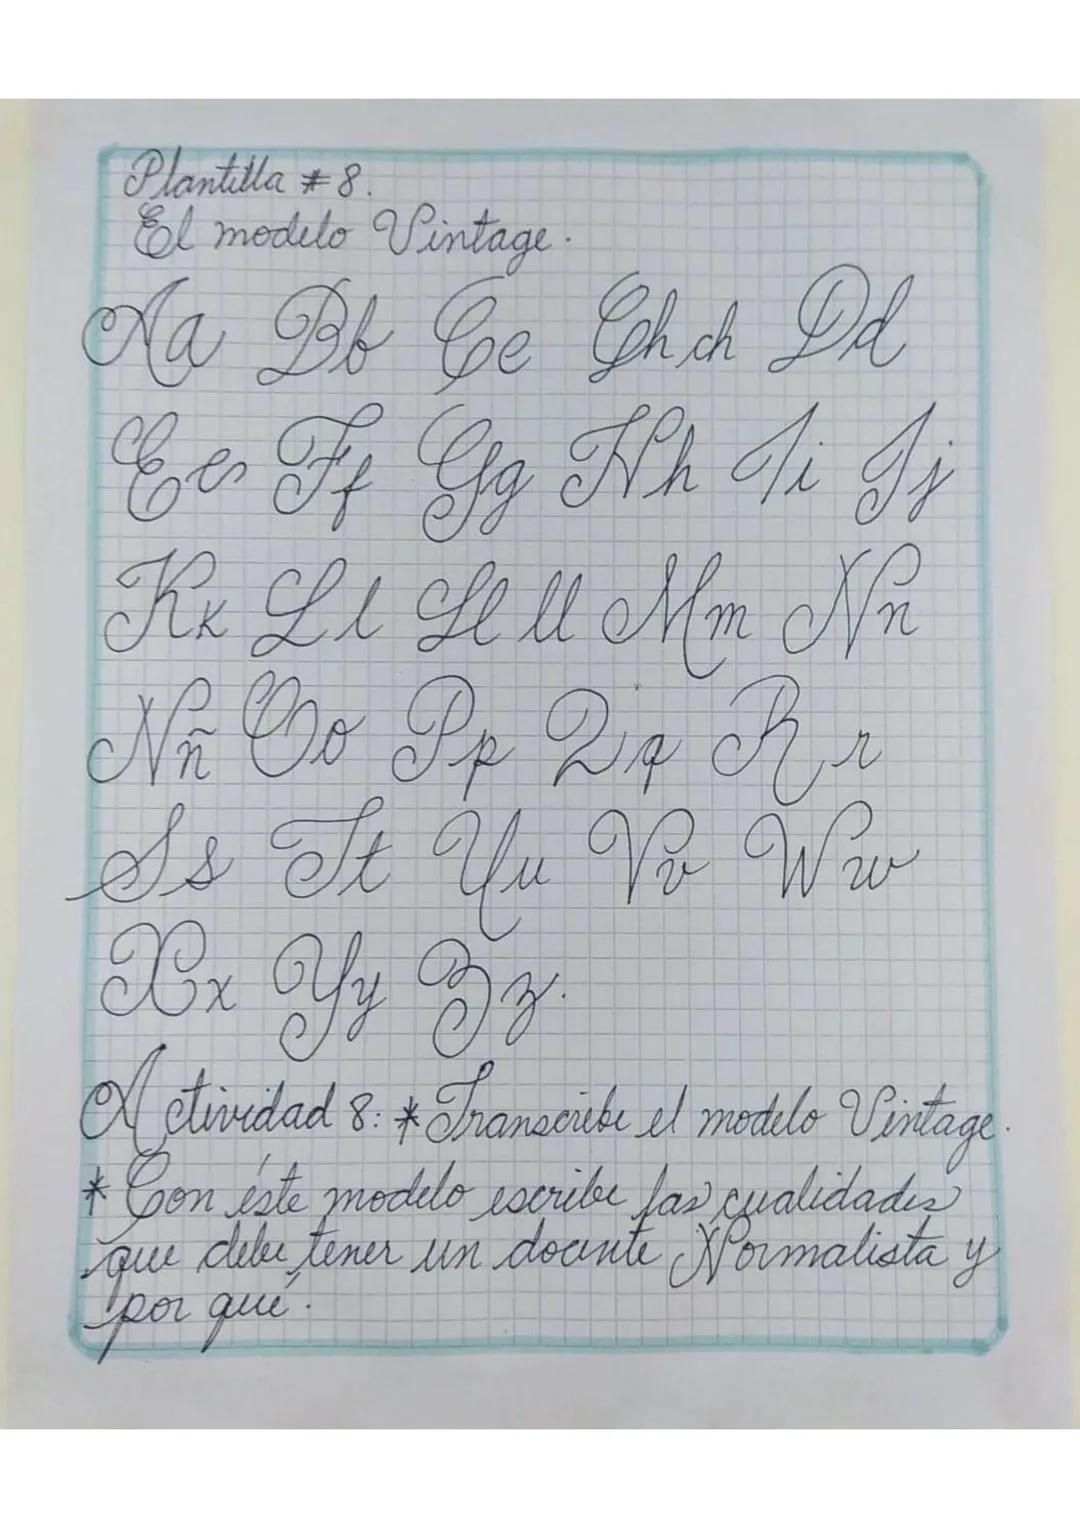 Plantilla # 8.
El modelo Vintage.
Aa Bb Cc Ch ch Dd
Ee Ff Gg Hh Ii Jj
Kk Ll Ll ll Mm Nn
Ññ Oo Pp Qq Rr
Ss Tt Uu Vv Ww
Xx Yy Zz.
Actividad 8: * Transcribe el modelo Vintage.
* Con éste modelo escribe las cualidades
que debe tener un docente Normalista y
por qué.